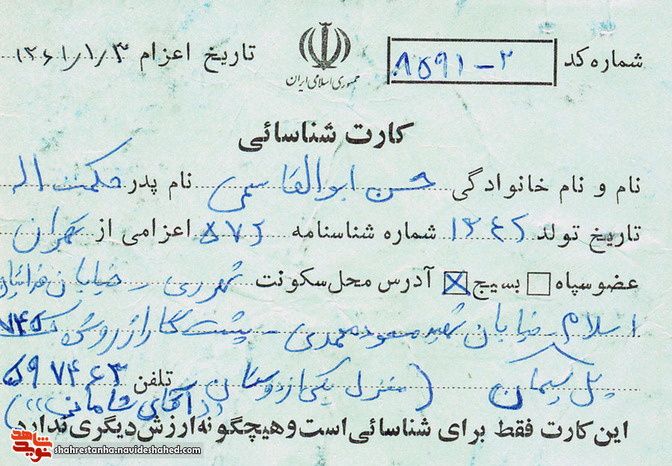 شماره کد ۸۵۹۱-۲
جمهوری اسلامی ایران
تاریخ اعزام ۱۳۶۱/۱/۳
کارت شناسائی
نام و نام خانوادگی حسن ابوالقاسمی نام پدر حکمت اله
تاریخ تولد ۱۳۴۲ شماره شناسنامه ۵۷۲ اعزامی از تهران
عضو سپاه بسیج آدرس محل سکونت شهرری - خیابان فدائیان
اسلام - خیابان شهید مسعود محمدی - پشت گاراژ
پل سیمان (منزل یکی از دوستان تلفن ۵۹۷۴۶۳
((آقای شامانی))
این کارت فقط برای شناسائی است و هیچگونه ارزش دیگری ندارد
نوید شاهد
shahrestanha.navideshahed.com